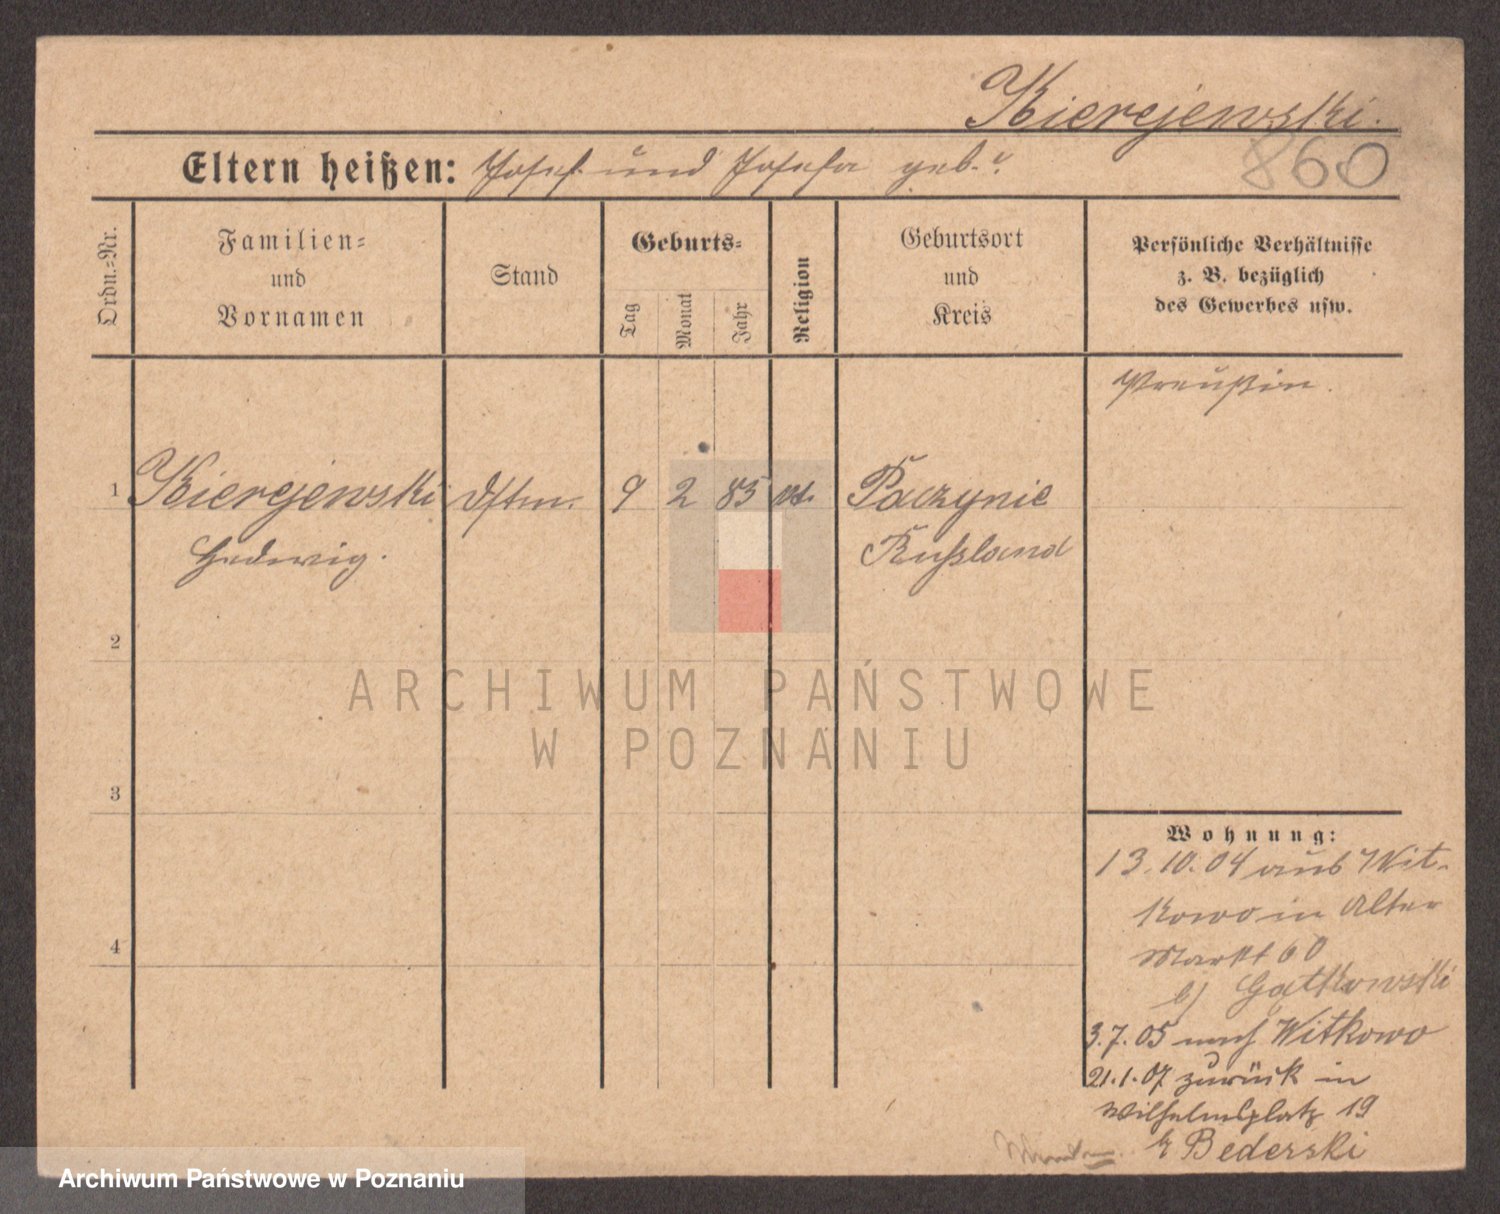 Kierejewski.
860
Eltern heißen: Josef und Josefa geb. ?
Ordn.-Nr.
Familien-
und
Vornamen
Stand
Geburts-
Tag
Monat
Jahr
Religion
Geburtsort
und
Kreis
Persönliche Verhältnisse
z. B. bezüglich
des Gewerbes usw.
Preußin.
1 Kierejewski 9 2 85 kt. Paczynie
Hedwig. Russland
2
3
4
Wohnung:
13.10.04 aus Wit-
kowo in Alter
Markt 60
b/ Gątkowski
3.7.05 nach Witkowo
21.1.07 zurück in
Wilhelmsplatz 19
b Bederski
ARCHIWUM PAŃSTWOWE
W POZNANIU
Archiwum Państwowe w Poznaniu